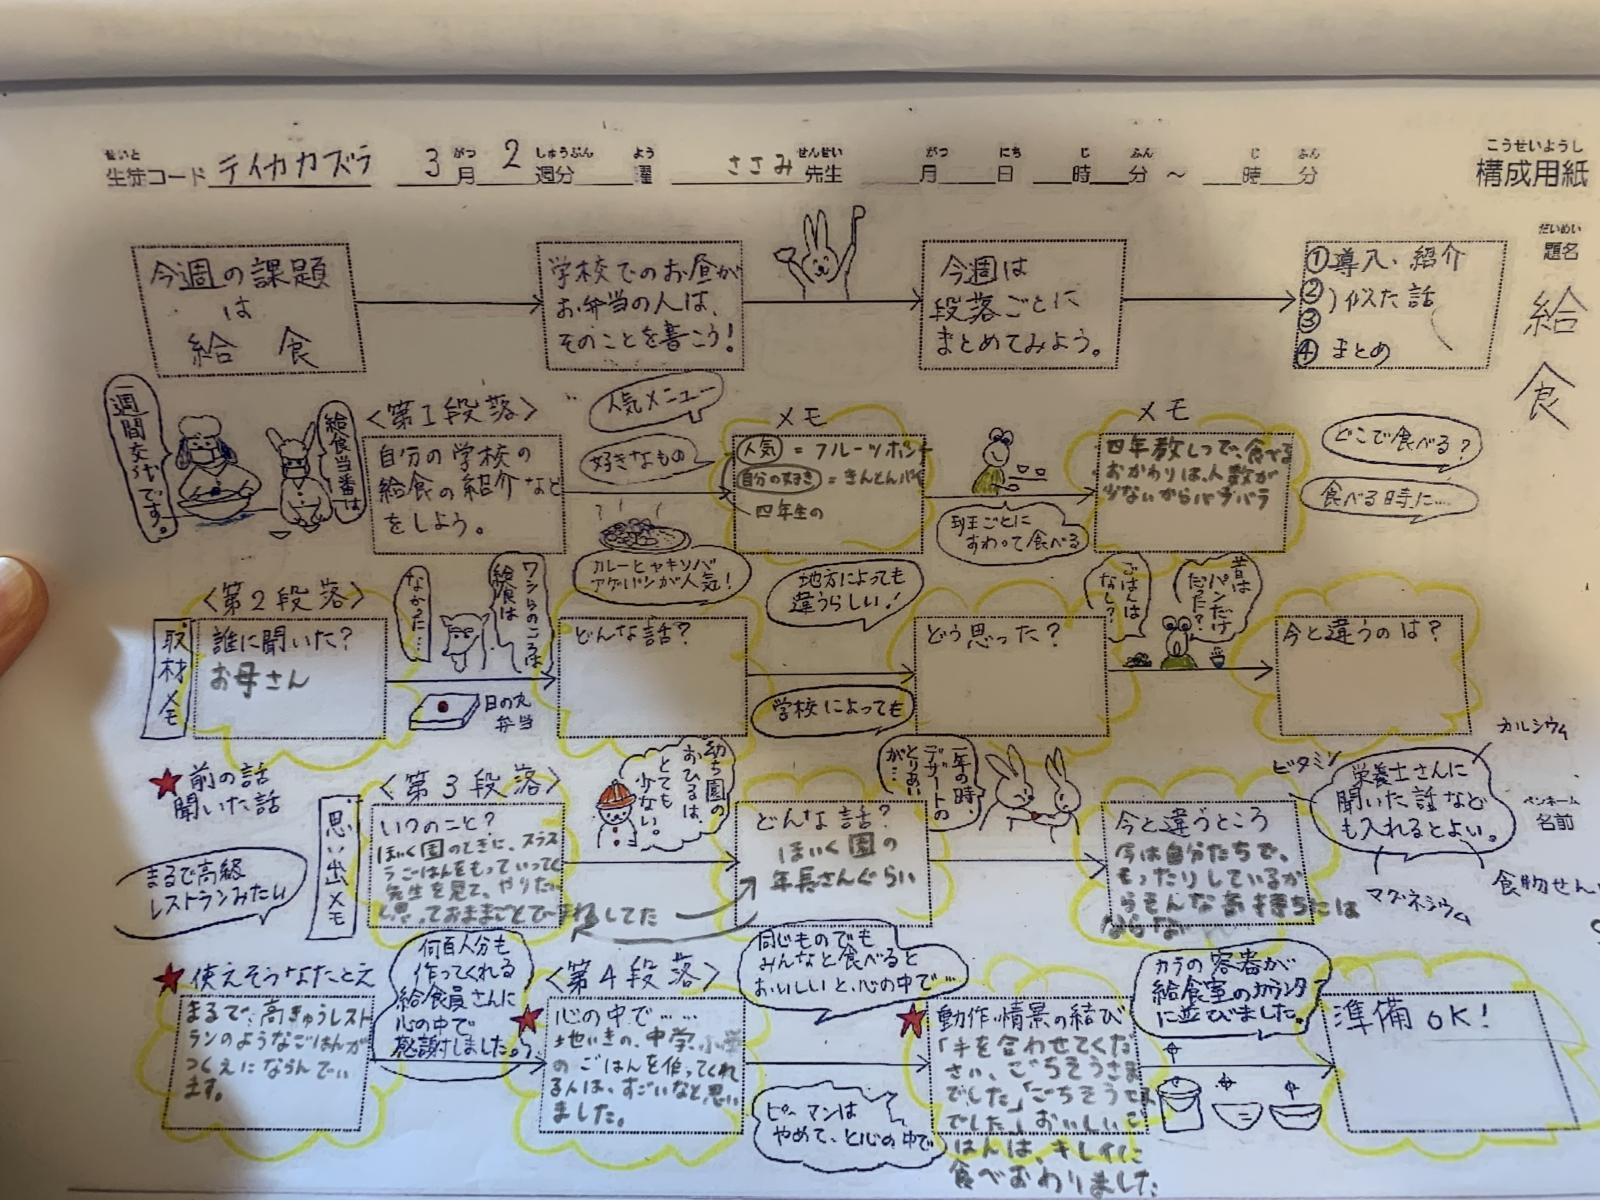 こうせいようし
構成用紙
せいと
生徒コード テイカカズラ 3月 2週分 曜 ささみ先生 月 日 時 分 〜 時 分
がつ しゅうぶん よう せんせい がつ にち じ ふん じ ふん
だいめい
題名
給食
今週の課題
は
給 食
学校でのお昼が
お弁当の人は、
そのことを書こう!
今週は
段落ごとに
まとめてみよう。
①導入、紹介
②
③ )似た話
④ まとめ
一週間交代です。
給食当番は
<第1段落>
自分の学校の
給食の紹介など
をしよう。
人気メニュー
好きなもの
カレーヒャキソバ
アゲパンが人気!
メモ
人気 = フルーツポンチ
自分の好き = きんとんパイ
四年生の
班ごとに
すわって食べる
メモ
四年教しつで、食べる
おかわりは、人数が
少ないからバラバラ
どこで食べる?
食べる時に…
<第2段落>
取材メモ
誰に聞いた?
お母さん
なかった…
ワシらのころは
給食は
日の丸
弁当
どんな話?
地方によっても
違うらしい!
学校によっても
どう思った?
ごはんは
なし?
昔は
パンだけ
だった?
今と違うのは?
★前の話
聞いた話
まるで高級
レストランみたい
<第3段落>
思い出メモ
いつのこと?
ほいく園のときに、スラス
ラごはんをもっていってく
先生を見て、やりた
思っておままごとでまねしてた
幼ち園の
おひるは、
とても
少ない。
どんな話?
ほいく園の
年長さんぐらい
一年の時、
デザートの
とりあい
が…
今と違うところ
今は自分たちで、
もったりしているか
らそんな気持ちには
ならな
栄養士さんに
聞いた話など
も入れるとよい。
ビタミン
カルシウム
マグネシウム
食物せん
ペンネーム
名前
★使えそうなたとえ
まるで、高きゅうレスト
ランのようなごはんが
つくえにならんでい
ます。
何百人分も
作ってくれる
給食員さんに
心の中で
感謝しました。
<第4段落>
★心の中で……
地いきの、中学、小学
のごはんを作ってくれ
る人は、すごいなと思い
ました。
同じものでも
みんなと食べると
おいしいと、心の中で…
ピーマンは
やめて、と心の中で
★動作、情景の結び
「手を合わせてくだ
さい、ごちそうさま
でした」「ごちそうさま
でした」おいしいご
はんは、キレイに
食べおわりました
カラの容器が
給食室のカウンタ
に並びました。
準備OK!